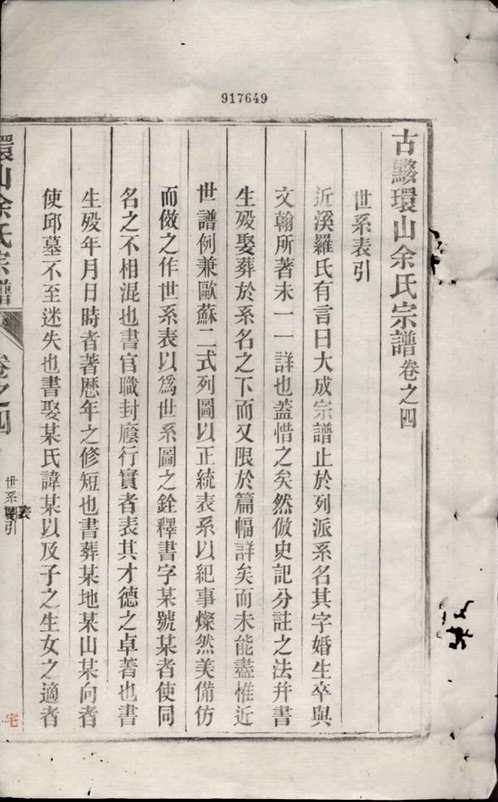 917649
古黟環山余氏宗譜卷之四
世系表引
近溪羅氏有言曰大成宗譜止於列派系名其字婚生卒與
文翰所著未一一詳也蓋惜之矣然倣史記分註之法幷書
生歿娶葬於系名之下而又限於篇幅詳矣而未能盡惟近
世譜例兼歐蘇二式列圖以正統表系以紀事燦然美備仿
而做之作世系表以爲世系圖之銓釋書字某號某者使同
名之不相混也書官職封廕行實者表其才德之卓著也書
生歿年月日時者著歷年之修短也書葬某地某山某向者
使邱墓不至迷失也書娶某氏諱某以及子之生女之適者
環山余氏宗譜
卷之四
世系表引
宅